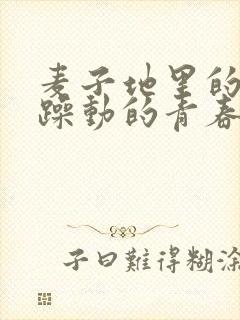 麦子地里的
躁動的青春
子曰難得糊涂